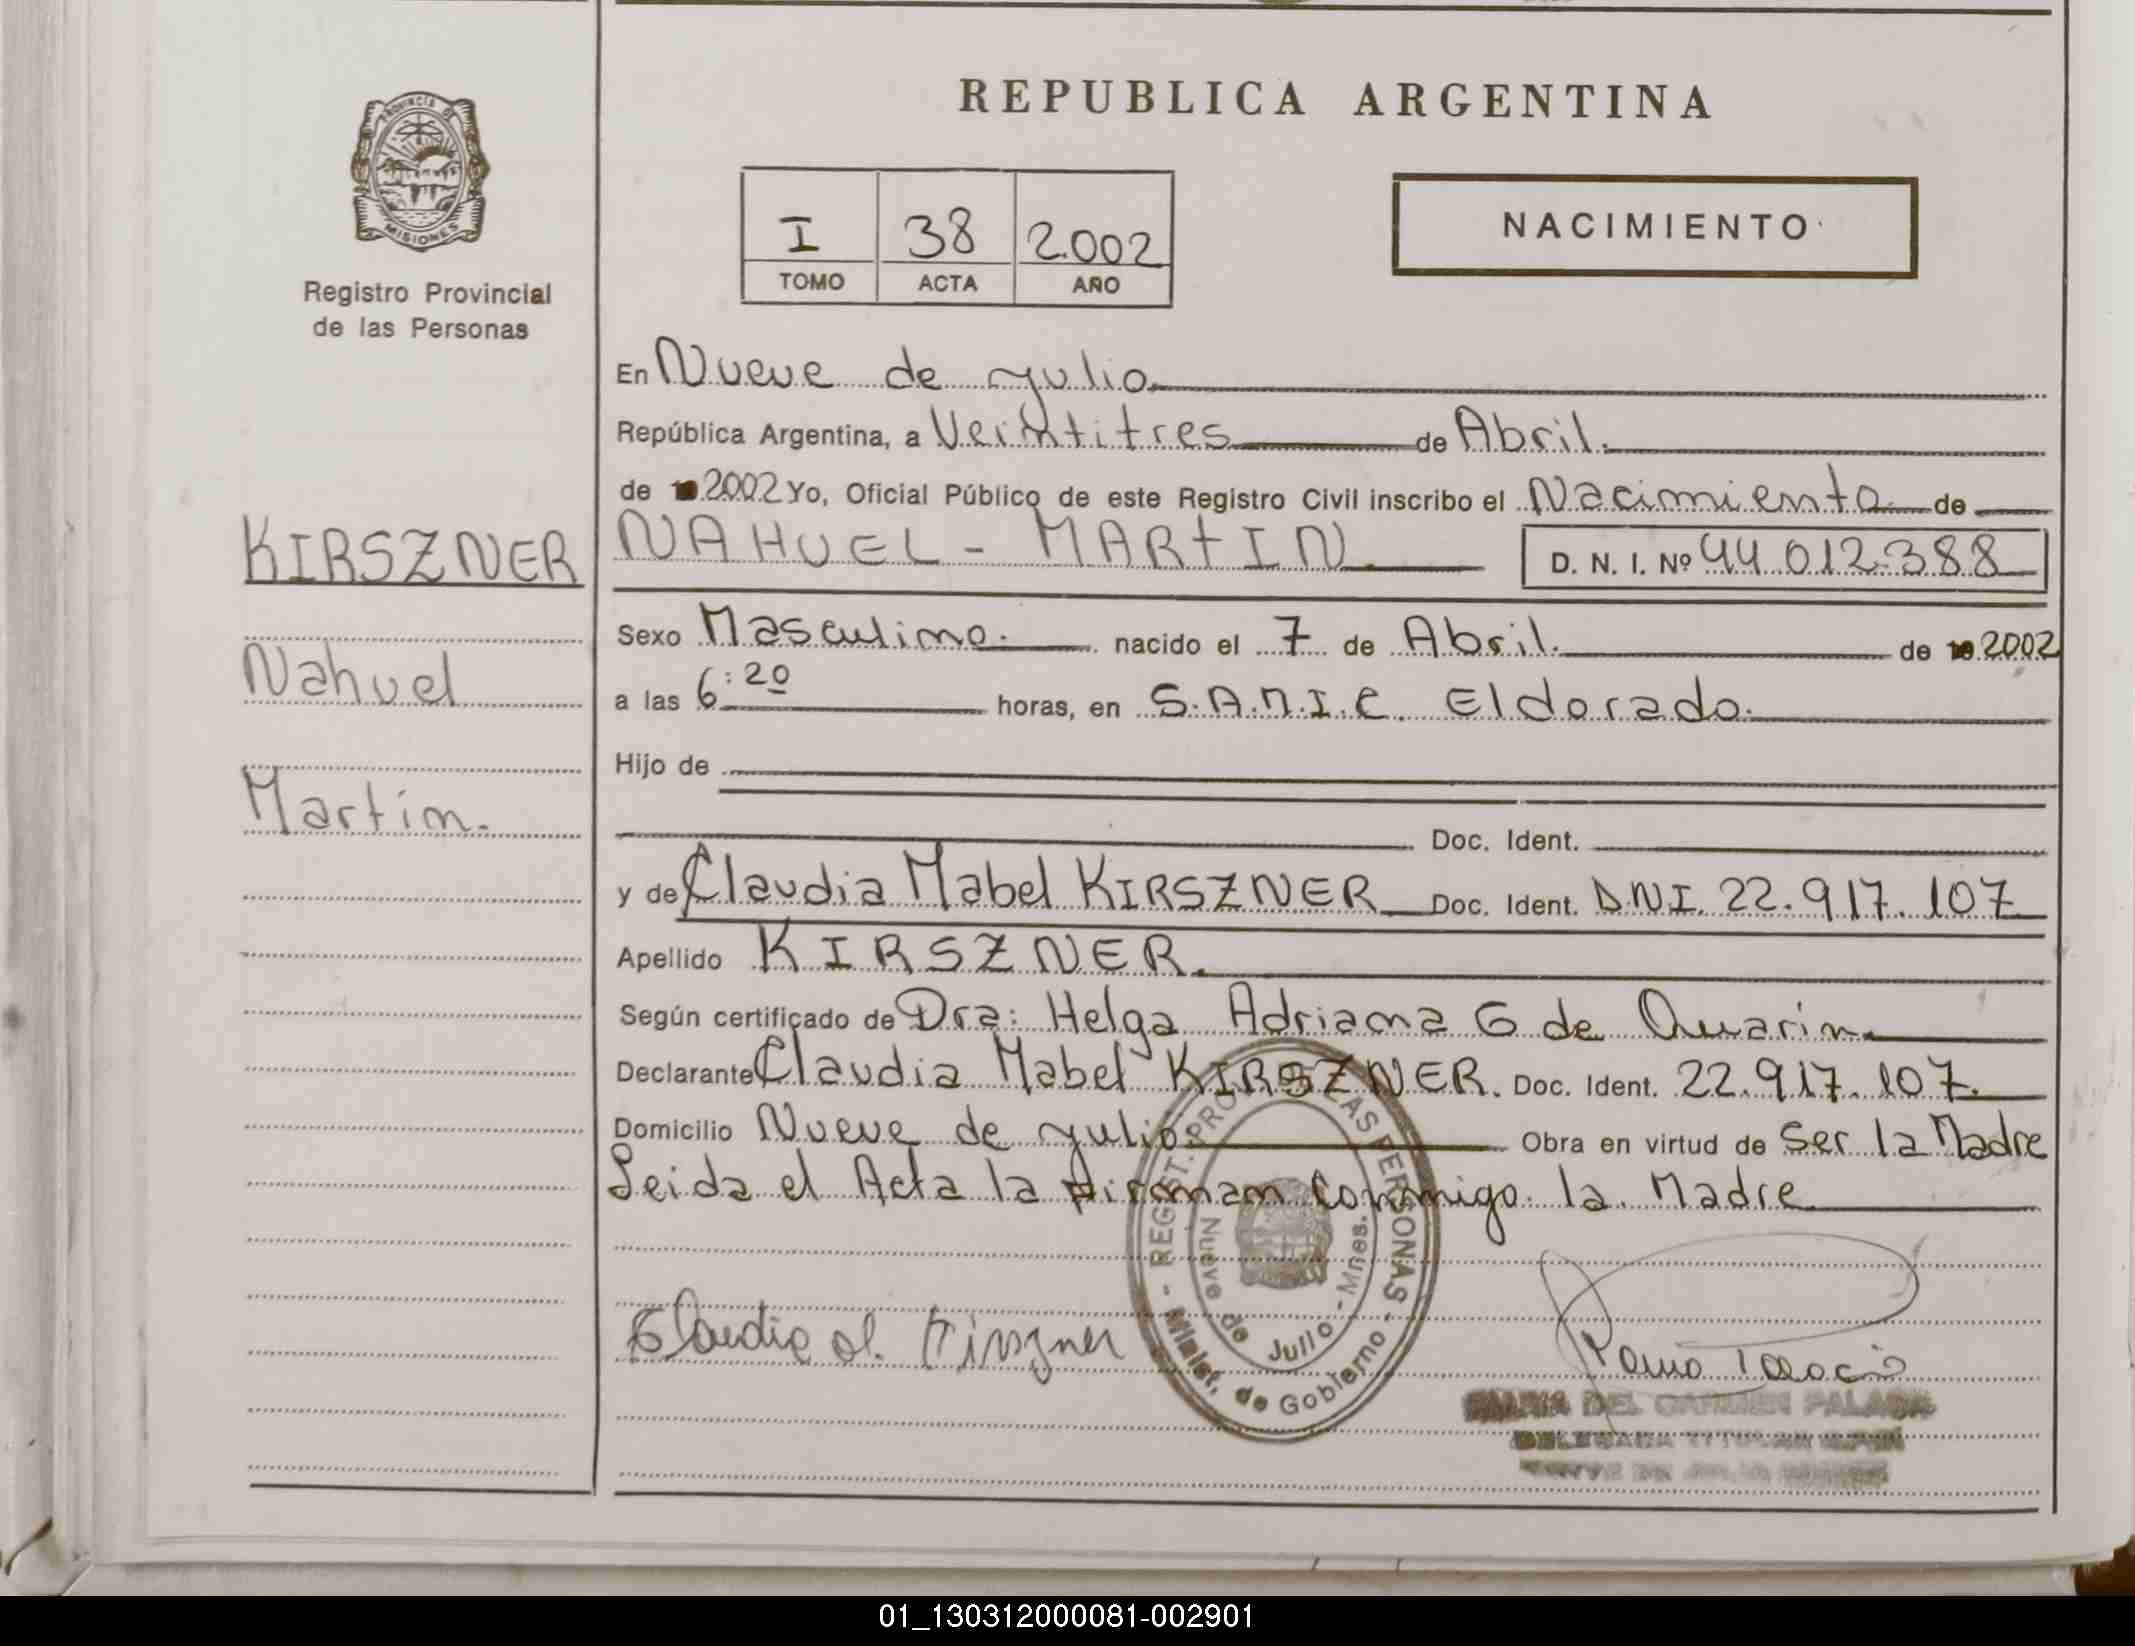 REPUBLICA ARGENTINA
PROVINCIA DE
MISIONES
Registro Provincial
de las Personas
I 38 2.002
TOMO ACTA AÑO
NACIMIENTO
En Nueve de Julio
República Argentina, a Veintitres de Abril.
de 2002 Yo, Oficial Público de este Registro Civil inscribo el Nacimiento de
KIRSZNER
Nahuel
Martin.
NAHUEL - MARTIN.
D. N. I. Nº 44.012.388
Sexo Masculino. nacido el 7 de Abril. de 2002
a las 6:20 horas, en S.A.M.I.C. Eldorado.
Hijo de
Doc. Ident.
y de Claudia Mabel KIRSZNER Doc. Ident. D.N.I. 22.917.107
Apellido KIRSZNER.
Según certificado de Dra: Helga Adriana G de
Declarante Claudia Mabel KIRSZNER. Doc. Ident. 22.917.107.
Domicilio Nueve de Julio. Obra en virtud de Ser la Madre
Leida el Acta la firman conmigo la Madre
REGIST. PROV. DE LAS PERSONAS - Minist. de Gobierno -
Nueve de Julio - Mnes.
Claudia M. Kirszner
MARIA DEL CARMEN
01_130312000081-002901